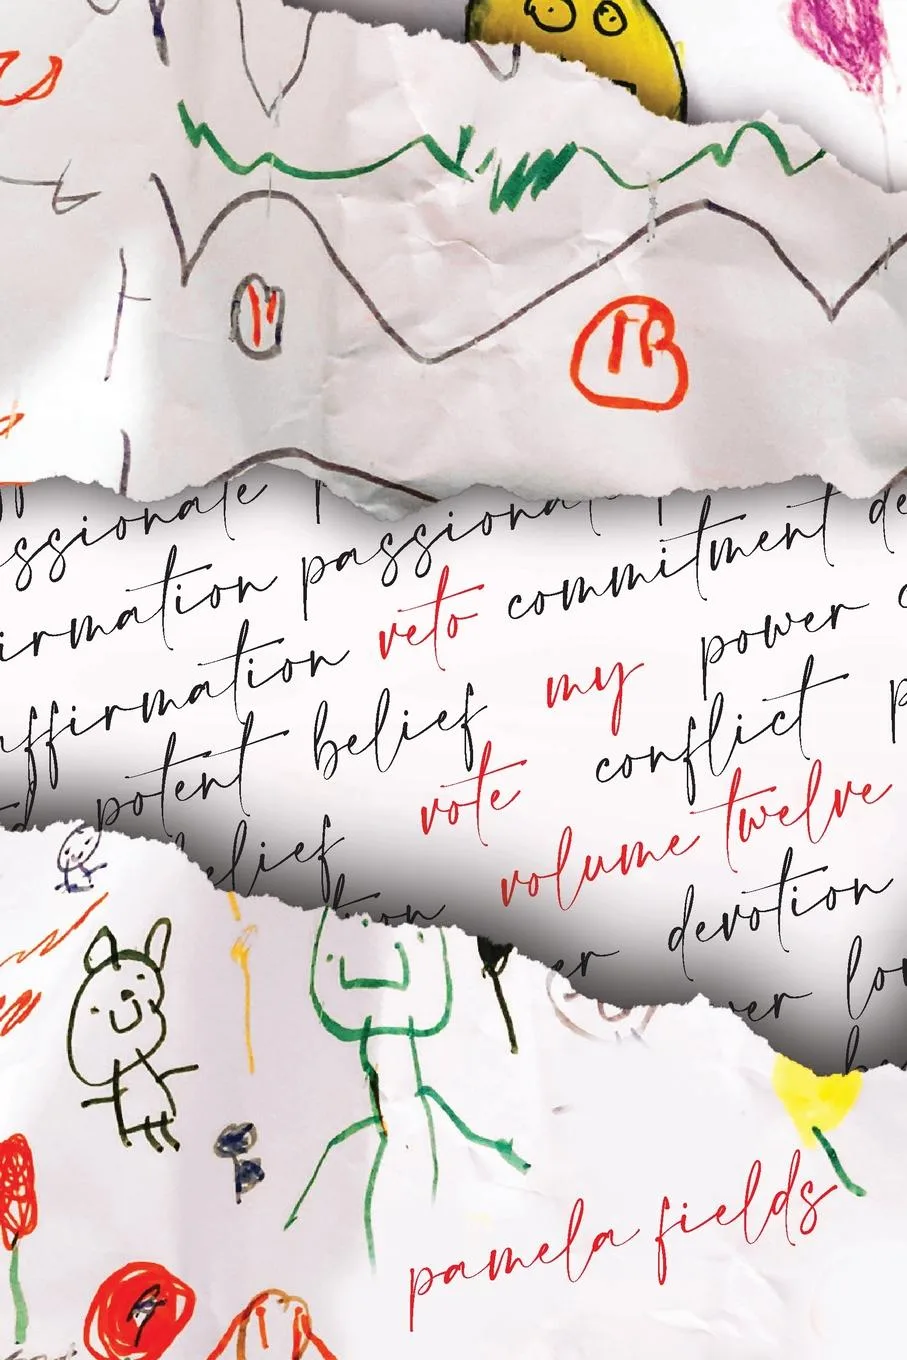 ssionate
irmation passionat
affirmation veto commitment de
potent belief my power c
belief vote conflict p
volume twelve
er devotion
ver lov
pamela fields